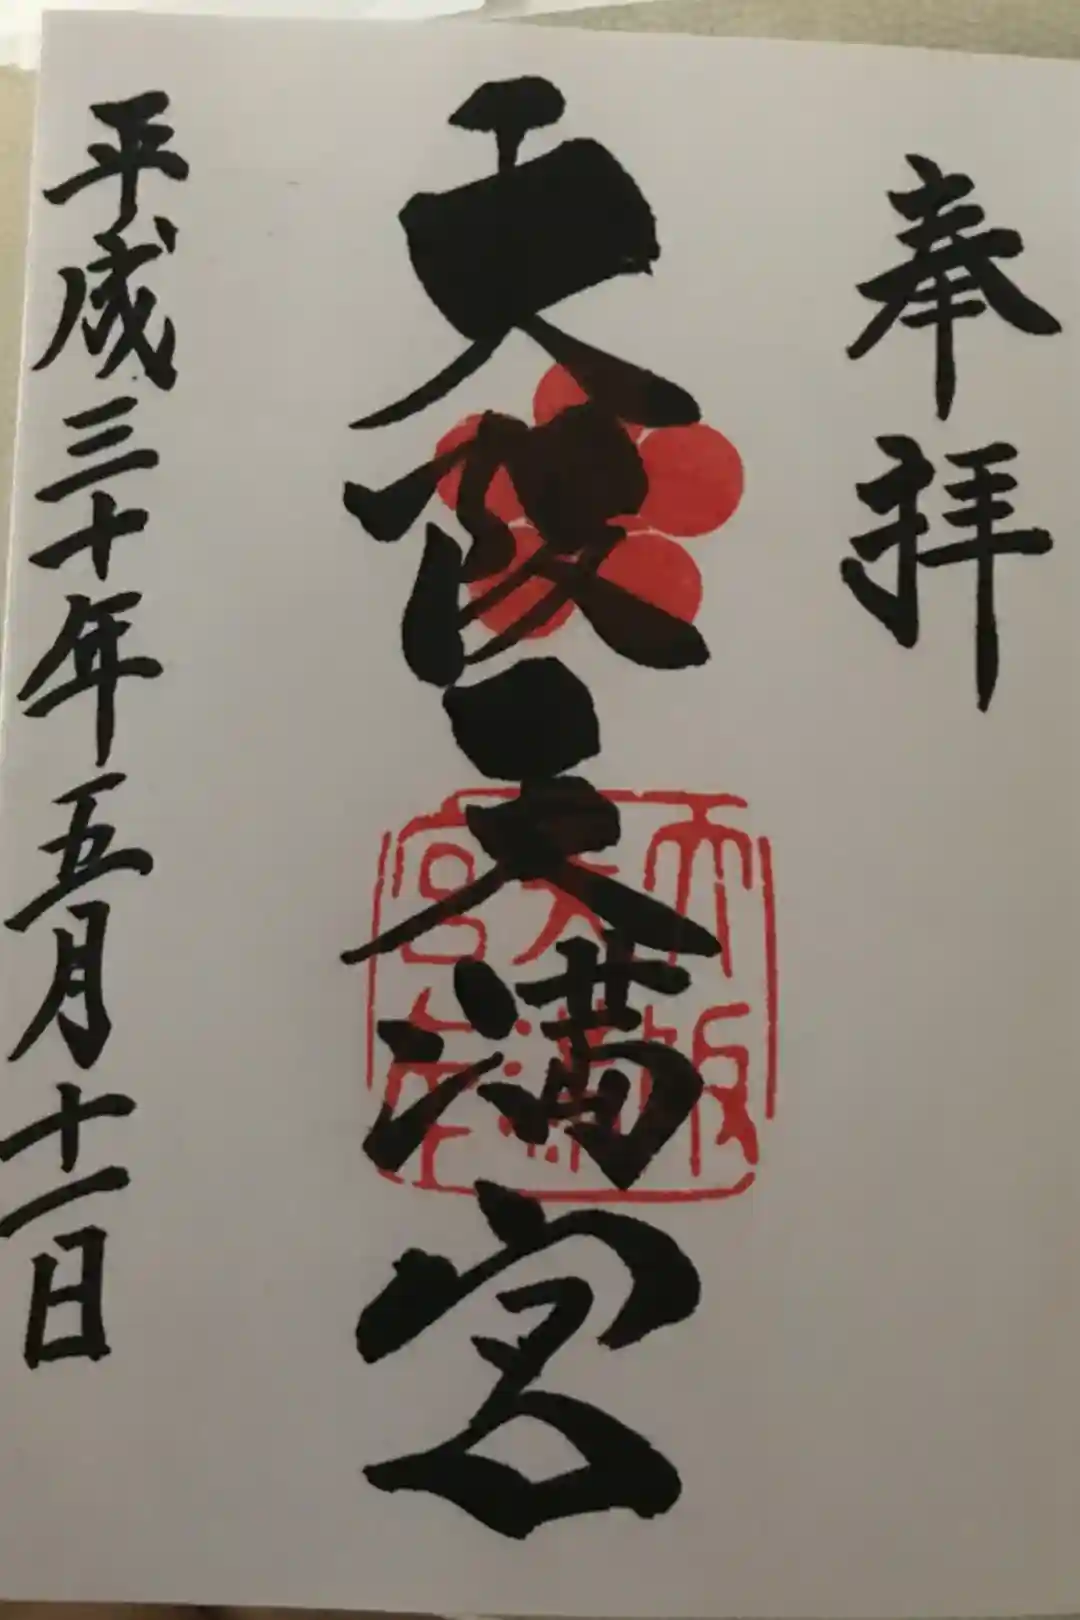 奉拝
大阪天満宮
平成三十年五月十一日
大阪
天満
宮